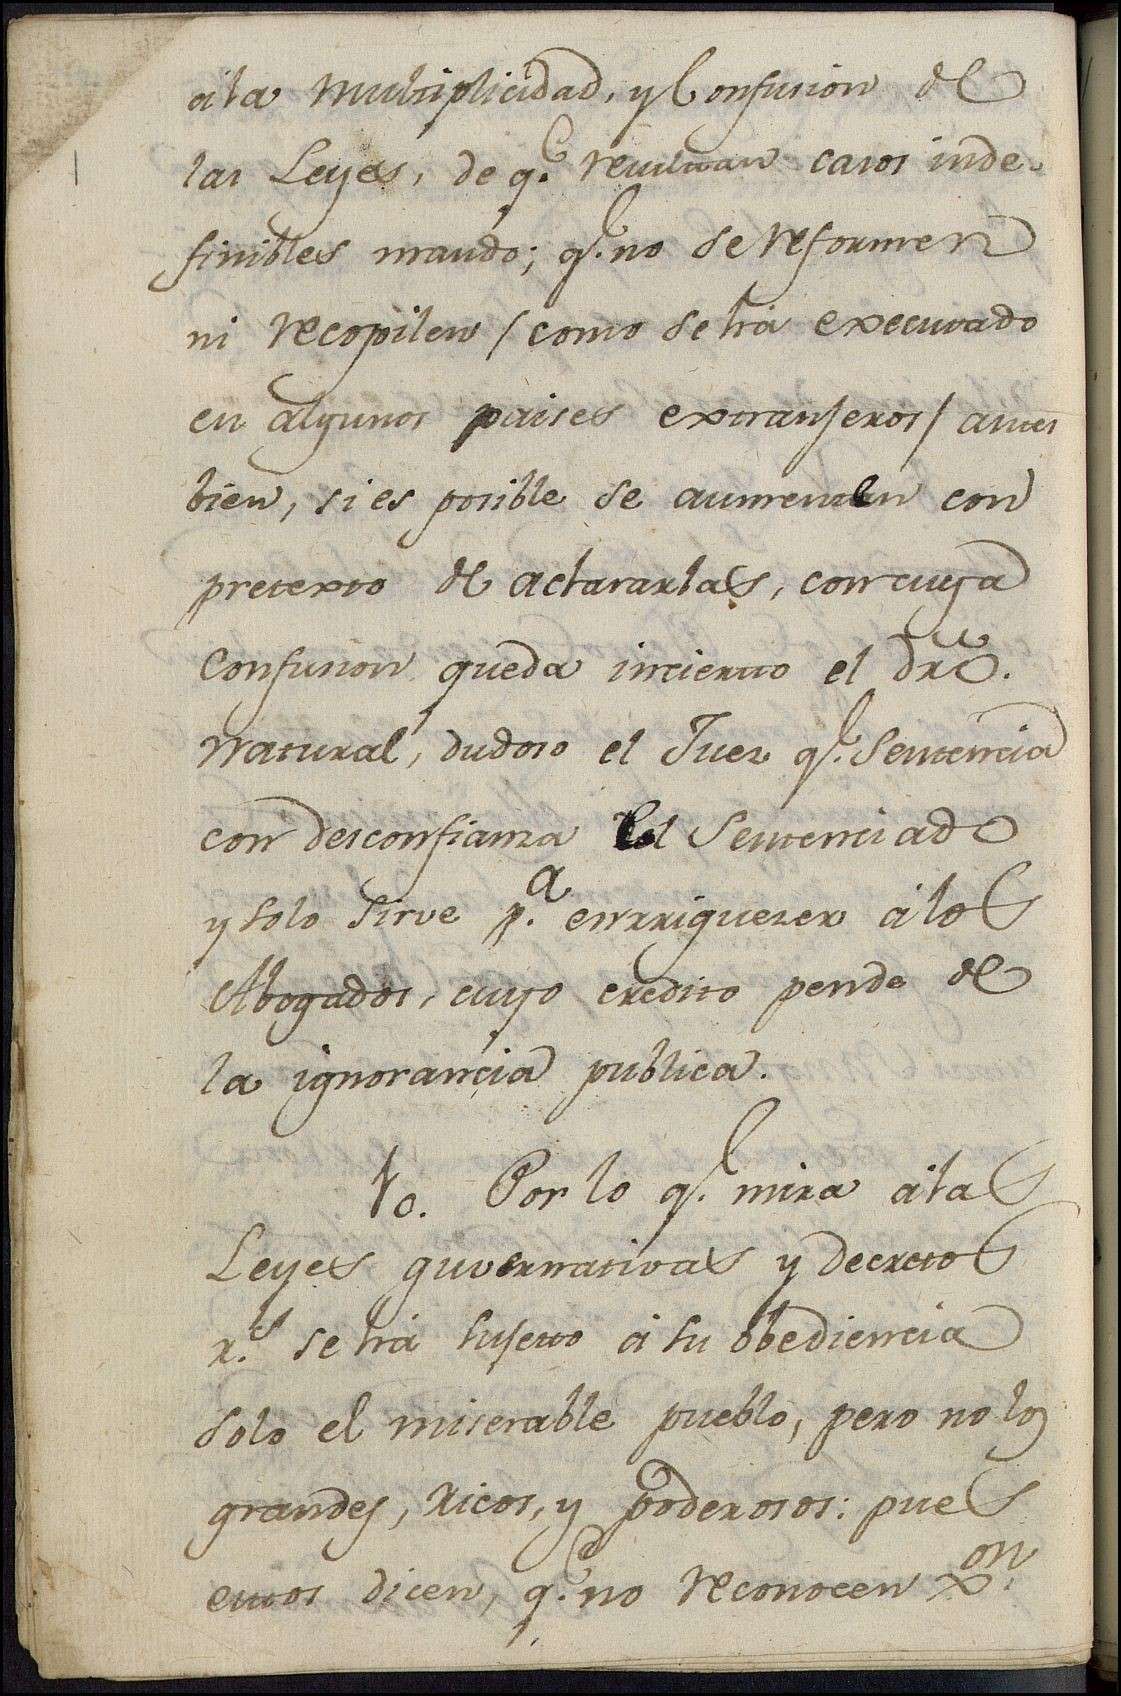 á la Multiplicidad, y Confusion de
las Leyes, de q.e resultan casos inde-
finibles mando; q.e no se reformen
ni recopilen / como se há executado
en algunos paises extranjeros / antes
bien, si es posible se aumenten con
pretexto de aclararlas, con cuya
confusion queda incierto el dr̃o.
Natural, dudoso el Juez q.e Sentencia
con desconfianza el Sentenciado
y solo sirve p.a enrriquezer á los
Abogados, cuyo credito pende de
la ignorancia publica.
10. Por lo q.e mira á las
Leyes guvernativas y decretos
r.s se há sujetto á su obediencia
solo el miserable pueblo, pero no los
grandes, ricos, y poderosos: pues
estos dicen, q.e no reconocen